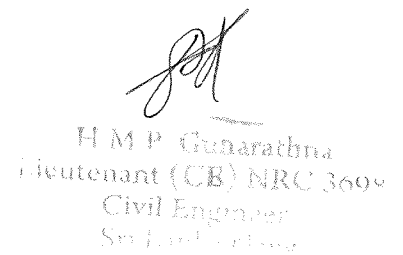 H M P Gunarathna
Lieutenant (CB) NRC 3698
Civil Engineer
Sri